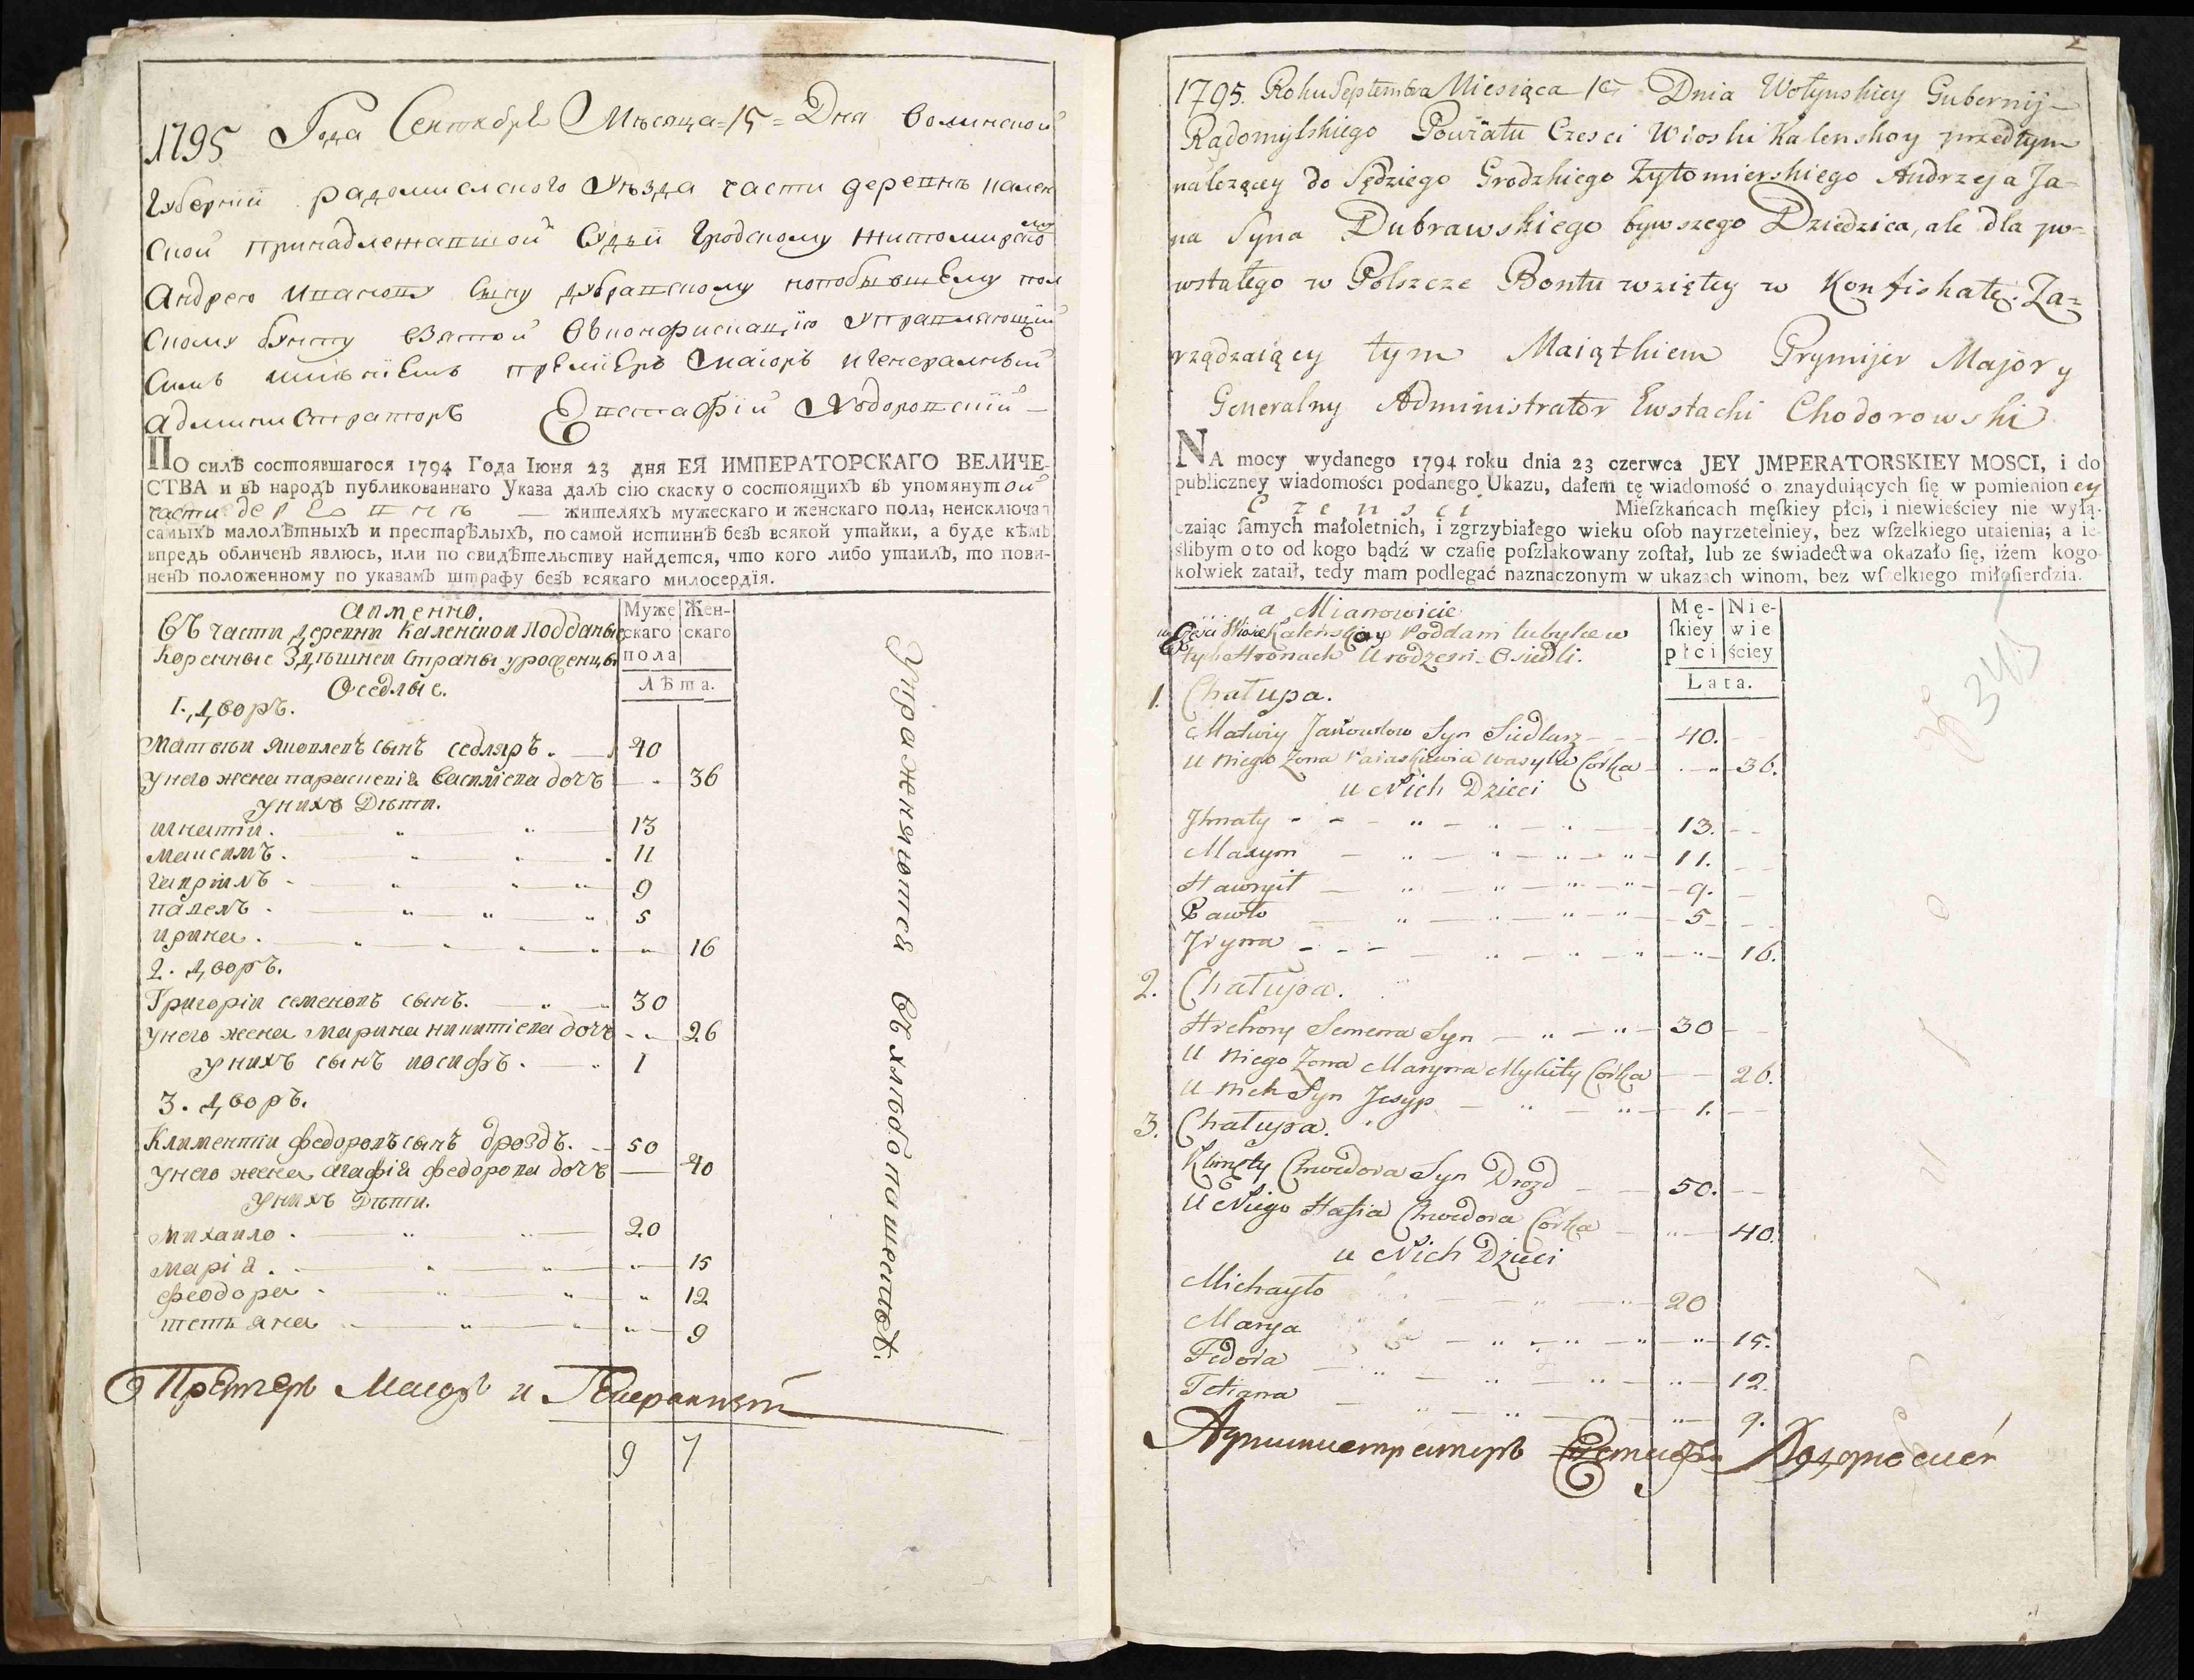 1795 Года Сентября Мѣсяца = 15 = Дня волинской
Губернїи радомисльского Уѣзда части деревнѣ кален
ской принадлежавшой Судьи Гродскому житомирско
му
Андрею Иванову Сыну дубравскому
скому бунту взятой вконфискацїю Управляющий
симъ имѣнїемъ премїеръ маїоръ и Генералный
Администраторъ Евстафїй Ходоровскїй
ПО силѣ состоявшагося 1794 Года Іюня 23 дня ЕЯ ИМПЕРАТОРСКАГО ВЕЛИЧЕ-
СТВА и въ народъ публикованнаго Указа далъ сїю скаску о состоящихъ въ упомянутой
части деревни — жителяхъ мужескаго и женскаго пола, неисключая
самыхъ малолѣтныхъ и престарѣлыхъ, по самой истиннѣ безъ всякой утайки, а буде кѣмъ
впредь обличенъ явлюсь, или по свидѣтельству найдется, что кого либо утаилъ, то пови-
ненъ положенному по указамъ штрафу безъ всякаго милосердїя.
Аименно.
Въ части деревни Каленской Подданые
Коренные Здѣшней Страны уроженцы
Оседлые.
Муже
скаго
пола
Жен-
скаго
Лѣта.
1. Дворъ.
Матвей Яковлевъ сынъ седляръ. 40
унего жена параскевїя василїева дочь 36
унихъ Дѣти.
игнатїи. 13
максимъ. 11
гаврїилъ 9
павелъ. 5
ирина. 16
2. Дворъ.
Григорїи семеновъ сынъ. 30
унего жена марина никитїева дочь 26
унихъ сынъ иосифъ. 1
3. Дворъ.
Климентїи федоровъ сынъ дроздъ. 50
унего жена агафїя федорова дочь 40
унихъ Дѣти.
михаило. 20
марїя. 15
феодора. 12
татьяна 9
упражняются въ хлѣбопашествѣ.
Премїеръ Маиоръ и Генералный
9 7
2
1795. Roku Septembra Miesiąca 15 Dnia Wołynskiey Gubernij
Radomylskiego Powiatu Czesci Wioski Kalenskoy przedtym
nalezącey do Sędziego Grodzkiego Zytomierskiego Andrzeja Ja-
na Syna Dubrawskiego bywszego Dziedzica, ale dla po-
wstałego w Polszcze Bontu wziętey w Konfiskatę. Za-
rządzaiący tym Maiątkiem Prymijer Major y
Generalny Administrator Ewstachi Chodorowski
NA mocy wydanego 1794 roku dnia 23 czerwca JEY JMPERATORSKIEY MOSCI, i do
publiczney wiadomości podanego Ukazu, dałem tę wiadomość o znayduiących ſię w pomienion ey
Częsci Mieſzkańcach męſkiey płci, i niewieściey nie wyłą-
czaiąc ſamych małoletnich, i zgrzybiałego wieku oſob nayrzetelniey, bez wſzelkiego utaienia; a ie-
ślibym o to od kogo bądź w czaſie poſzlakowany zoſtał, lub ze świadectwa okazało ſię, iżem kogo-
kolwiek zataił, tedy mam podlegać naznaczonym w ukazach winom, bez wſzelkiego miłoſierdzia.
a Mianowicie
w Częsci Wioski Kalenskoy Poddani tubylce w
tych stronach Urodzeni. Osiedli.
Mę-
ſkiey
płci
Nie-
wie
ściey
Lata.
1. Chałupa.
Matwiy Jakowlow Syn Siedlarz 40.
u niego Zona Paraskiewia Wasyla Corka 36.
u Nich Dzieci
Jhnaty 13.
Maxym 11.
Hawryił 9.
Pawło 5
Jryna 16.
2. Chałupa.
Hrehory Semena Syn 30
u niego Zona Maryna Mykity Corka 26.
u nich Syn Josyp 1.
3. Chałupa.
Klimęty Chwedora Syn Drozd 50.
u Niego Hafia Chwedora Corka 40.
u Nich Dzieci
Michayło 20
Marya 15.
Fedora 12.
Tetiana 9.
Администраторъ Евстафїй Ходоровскїй